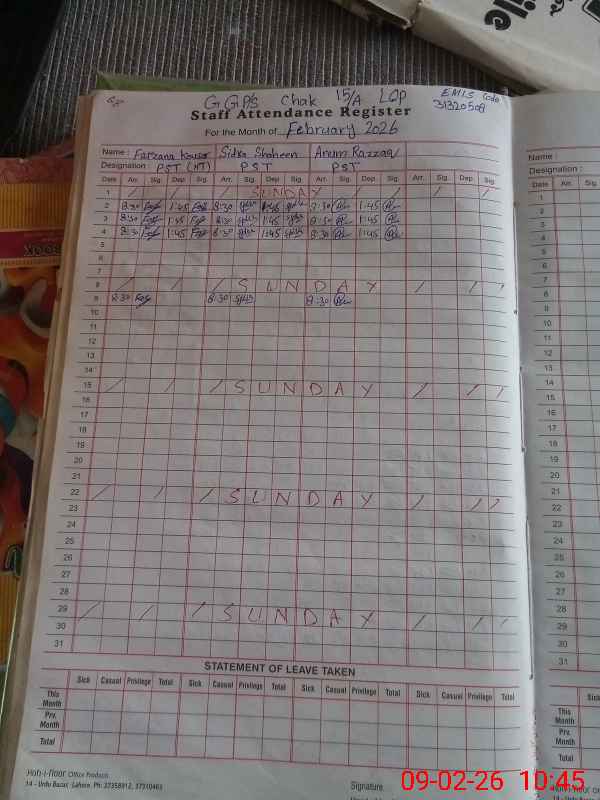 GGP/S Chak 15/A LQP
EMIS Code
31320508
Staff Attendance Register
For the Month of February 2026
Name : Farzana Kousar Sidra Shaheen Anum Razzaq
Designation : PST (HT) PST PST
Date Arr. Sig. Dep. Sig. Arr. Sig. Dep. Sig. Arr. Sig. Dep. Sig. Arr. Sig. Dep. Sig.
1 / / / SUNDAY / / / /
2 8:30 1:45 8:30 1:45 8:30 1:45
3 8:30 1:45 8:30 1:45 8:30 1:45
4 8:30 1:45 8:30 1:45 8:30 1:45
5
6
7
8 / / / SUNDAY / / /
9 8:30 8:30 8:30
10
11
12
13
14
15 / / / SUNDAY / / /
16
17
18
19
20
21
22 / / / SUNDAY / / /
23
24
25
26
27
28
29 / / / SUNDAY / / /
30
31
STATEMENT OF LEAVE TAKEN
Sick Casual Privilege Total Sick Casual Privilege Total Sick Casual Privilege Total Sick Casual Privilege Total
This Month
Prv. Month
Total
Office Products
14 - Urdu Bazar, Lahore. Ph: 37358912, 37310463
Signature
Name :
Designation :
Date Arr. Sig.
1
2
3
4
5
6
7
8
9
10
11
12
13
14
15
16
17
18
19
20
21
22
23
24
25
26
27
28
29
30
31
Sick
This Month
Prv. Month
Total
09-02-26 10:45